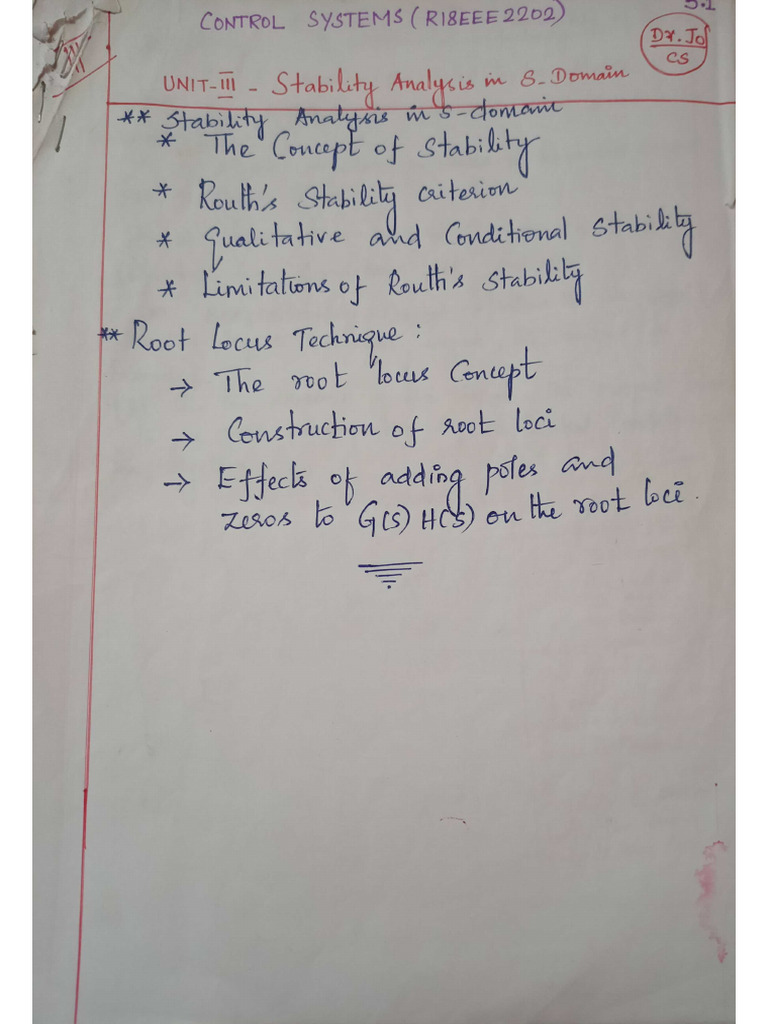 CONTROL SYSTEMS (R18EEE2202)
Dr. Jo
CS
UNIT-III - Stability Analysis in S-Domain
** Stability Analysis in s-domain
* The Concept of Stability
* Routh's Stability criterion
* Qualitative and Conditional Stability
* Limitations of Routh's Stability
** Root Locus Technique :
→ The root locus Concept
→ Construction of root loci
→ Effects of adding poles and
zeros to G(S) H(S) on the root loci.